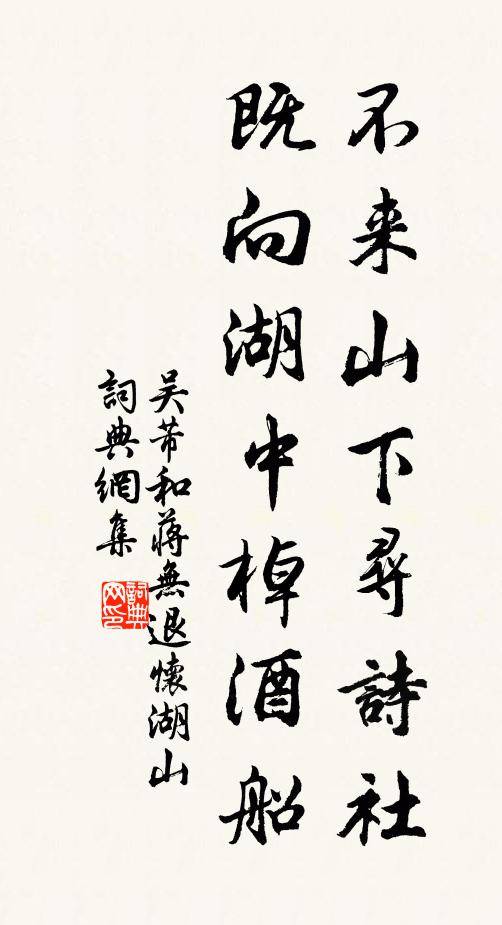 不来山下尋詩社
既向湖中棹酒船
吴芾和蔣無退懷湖山
詞典網集
詞典网印